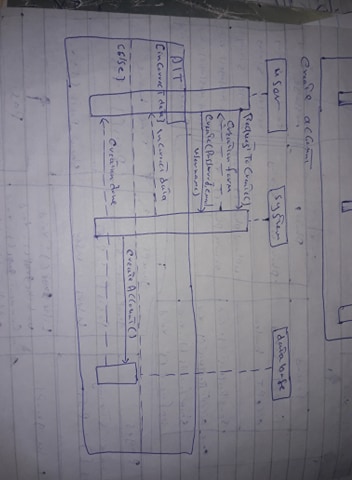 Create account
user
System
data base
Request to Create()
Creation form
Create(Password,email
username)
ALT
[incorrect data]
incorrect data
[else]
Create Account()
Creation done